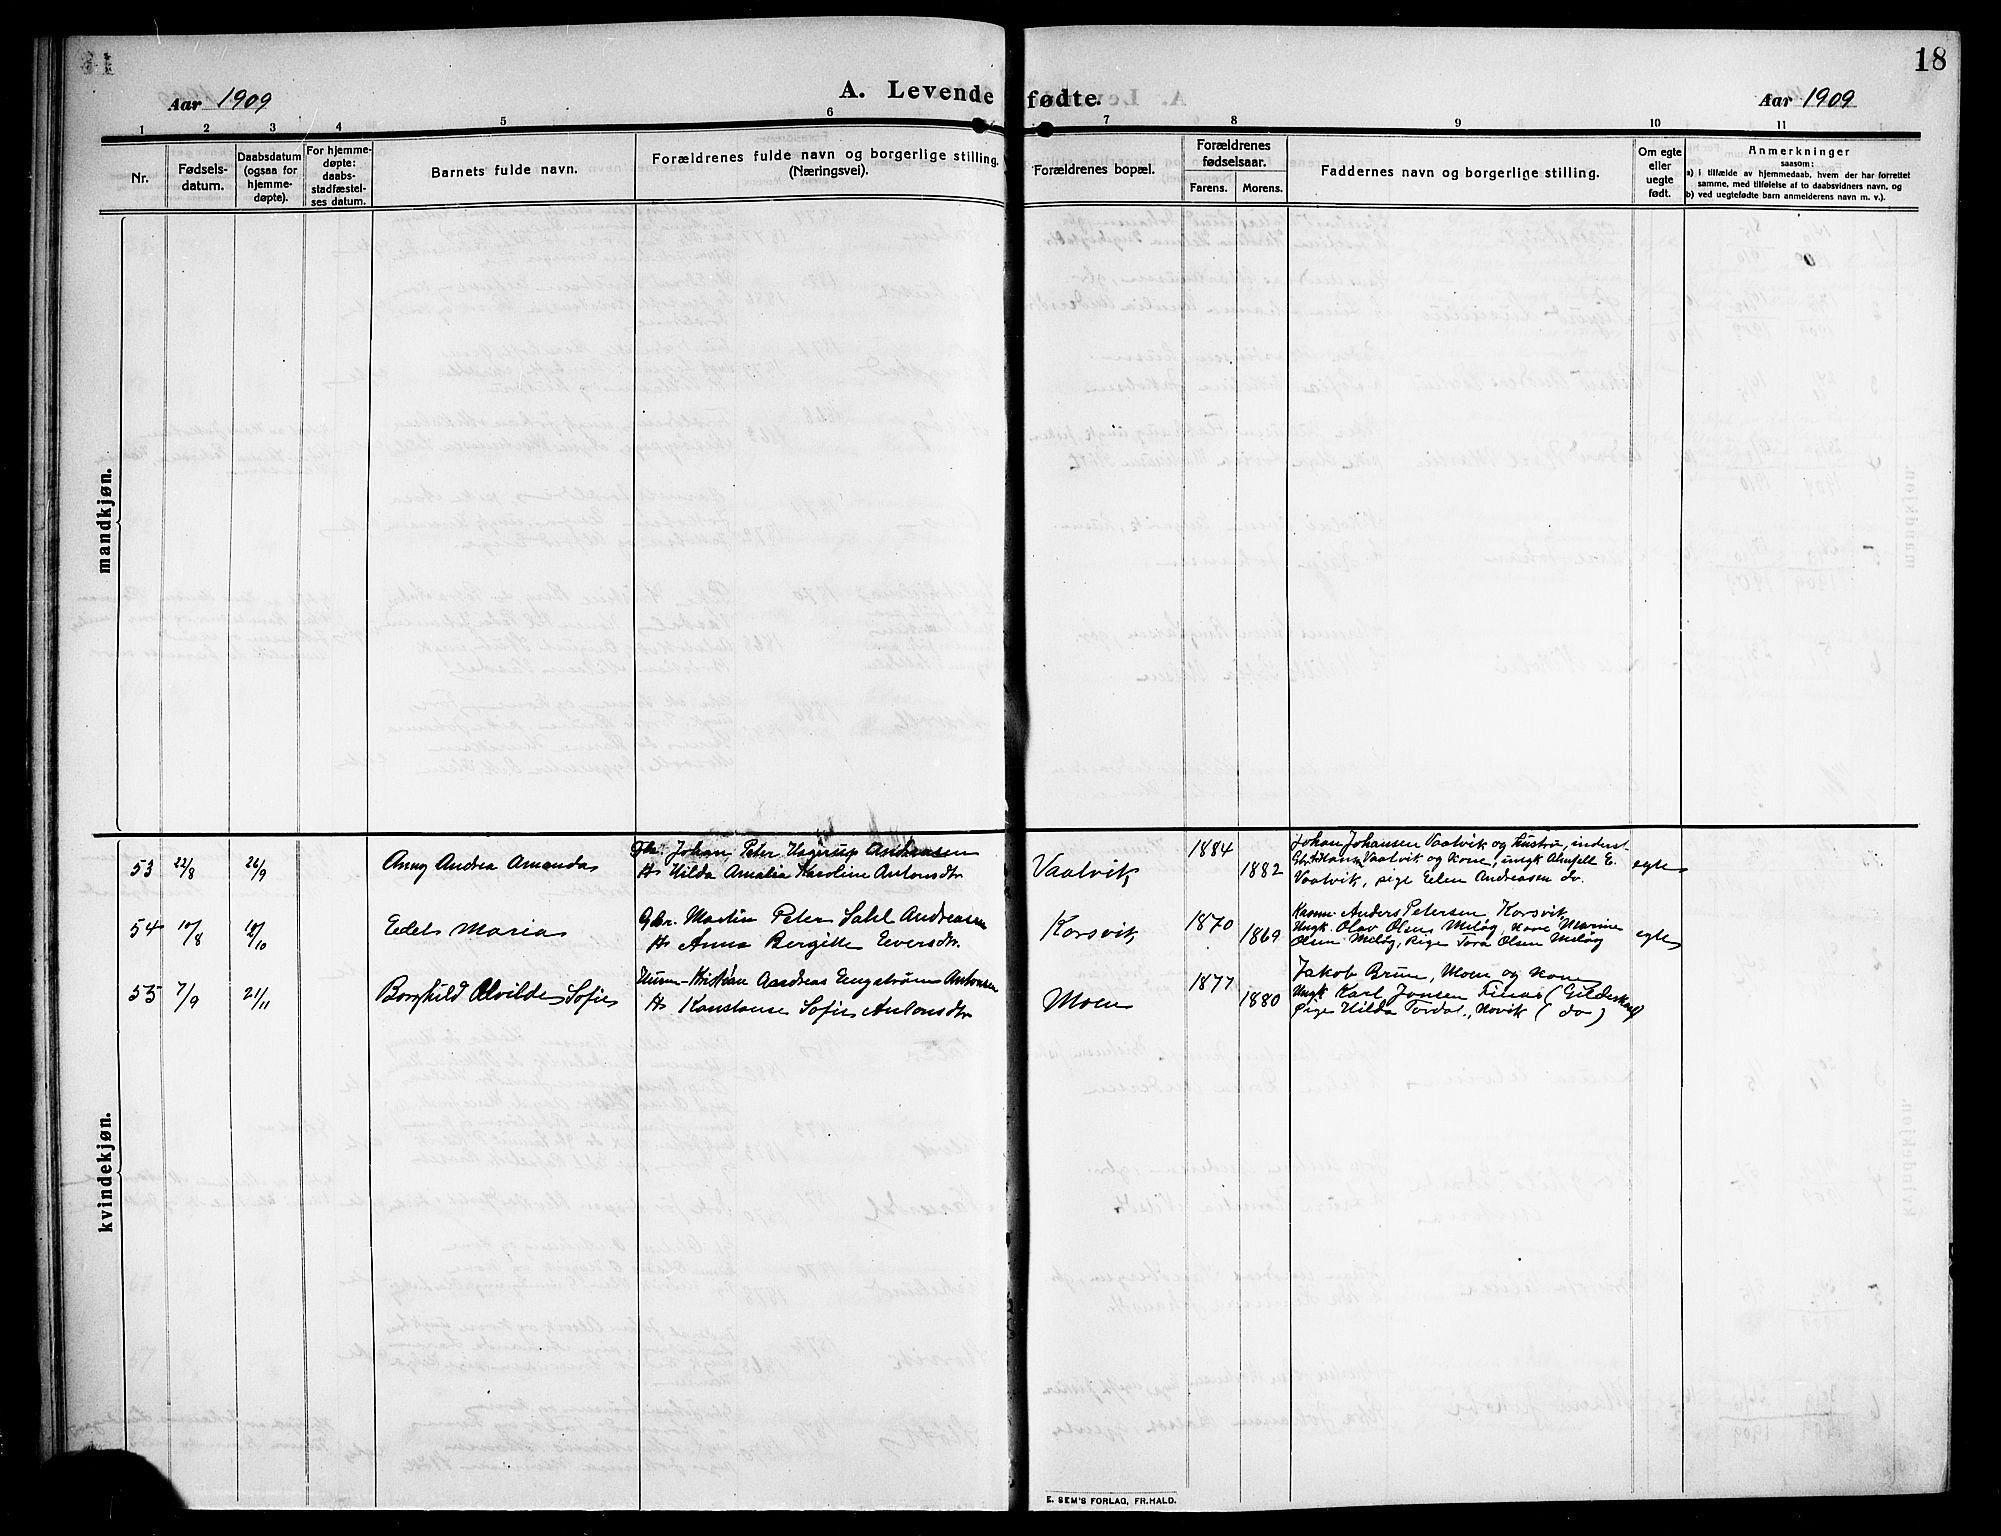 18
Aar 1909
A. Levende fødte.
Aar 1909
1 2 3 4 5 6 7 8 9 10 11
Nr.
Fødsels-
datum.
Daabsdatum
(ogsaa for
hjemme-
døpte).
For hjemme-
døpte:
daabs-
stadfæstel-
ses datum.
Barnets fulde navn.
Forældrenes fulde navn og borgerlige stilling.
(Næringsvei).
Forældrenes bopæl.
Forældrenes
fødselsaar.
Farens. Morens.
Faddernes navn og borgerlige stilling.
Om egte
eller
uegte
født.
Anmerkninger
saasom:
a) i tilfælde av hjemmedaab, hvem der har forrettet
samme, med tilføielse af to daabsvidners navn, og
b) ved uegtefødte barn anmelderens navn m. v.).
mandkjøn.
kvindekjøn.
53 22/8 26/9 Anny Andrea Amanda
Johan Peter Hagerup Andreasen
Hs Hilda Amalia Karoline Antonsdtr
Vaatvik
1884
1882
Johan Johansen Vaatvik og hustru, inderst
Vaatvik og kone, ungk E.
Vaatvik, pige Ellen Andreasen do.
egte
54 10/8 10/10 Edel Maria
Gbr. Martin Peter Dahl Andreasen
Hs Anna Bergitte Eversdtr.
Korsvik
1870
1869
Anders Petersen, Korsvik
Ungk. Olav Olsen Meløy, kone Marine
Olsen Meløy, pige Tora Olsen Meløy
egte
55 7/9 21/11 Borghild Alvilde Sofie
Kristian Andreas Engstrøm Antonsen
Hs Konstanse Sofie Antonsdtr
Moen
1877
1880
Jakob Brun, Moen og kone
Ungk Karl Jonsen Finas (Gildeskaal)
Pige Hilda Tordal, (do)
E. SEM'S FORLAG, FR.HALD.